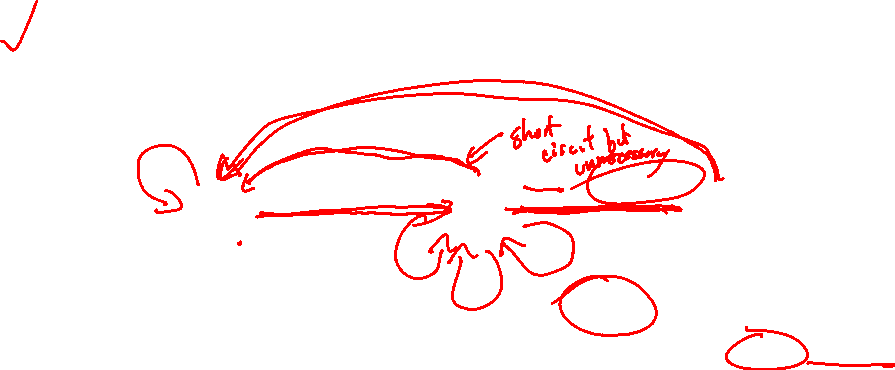 short
circuit but
unnecessary